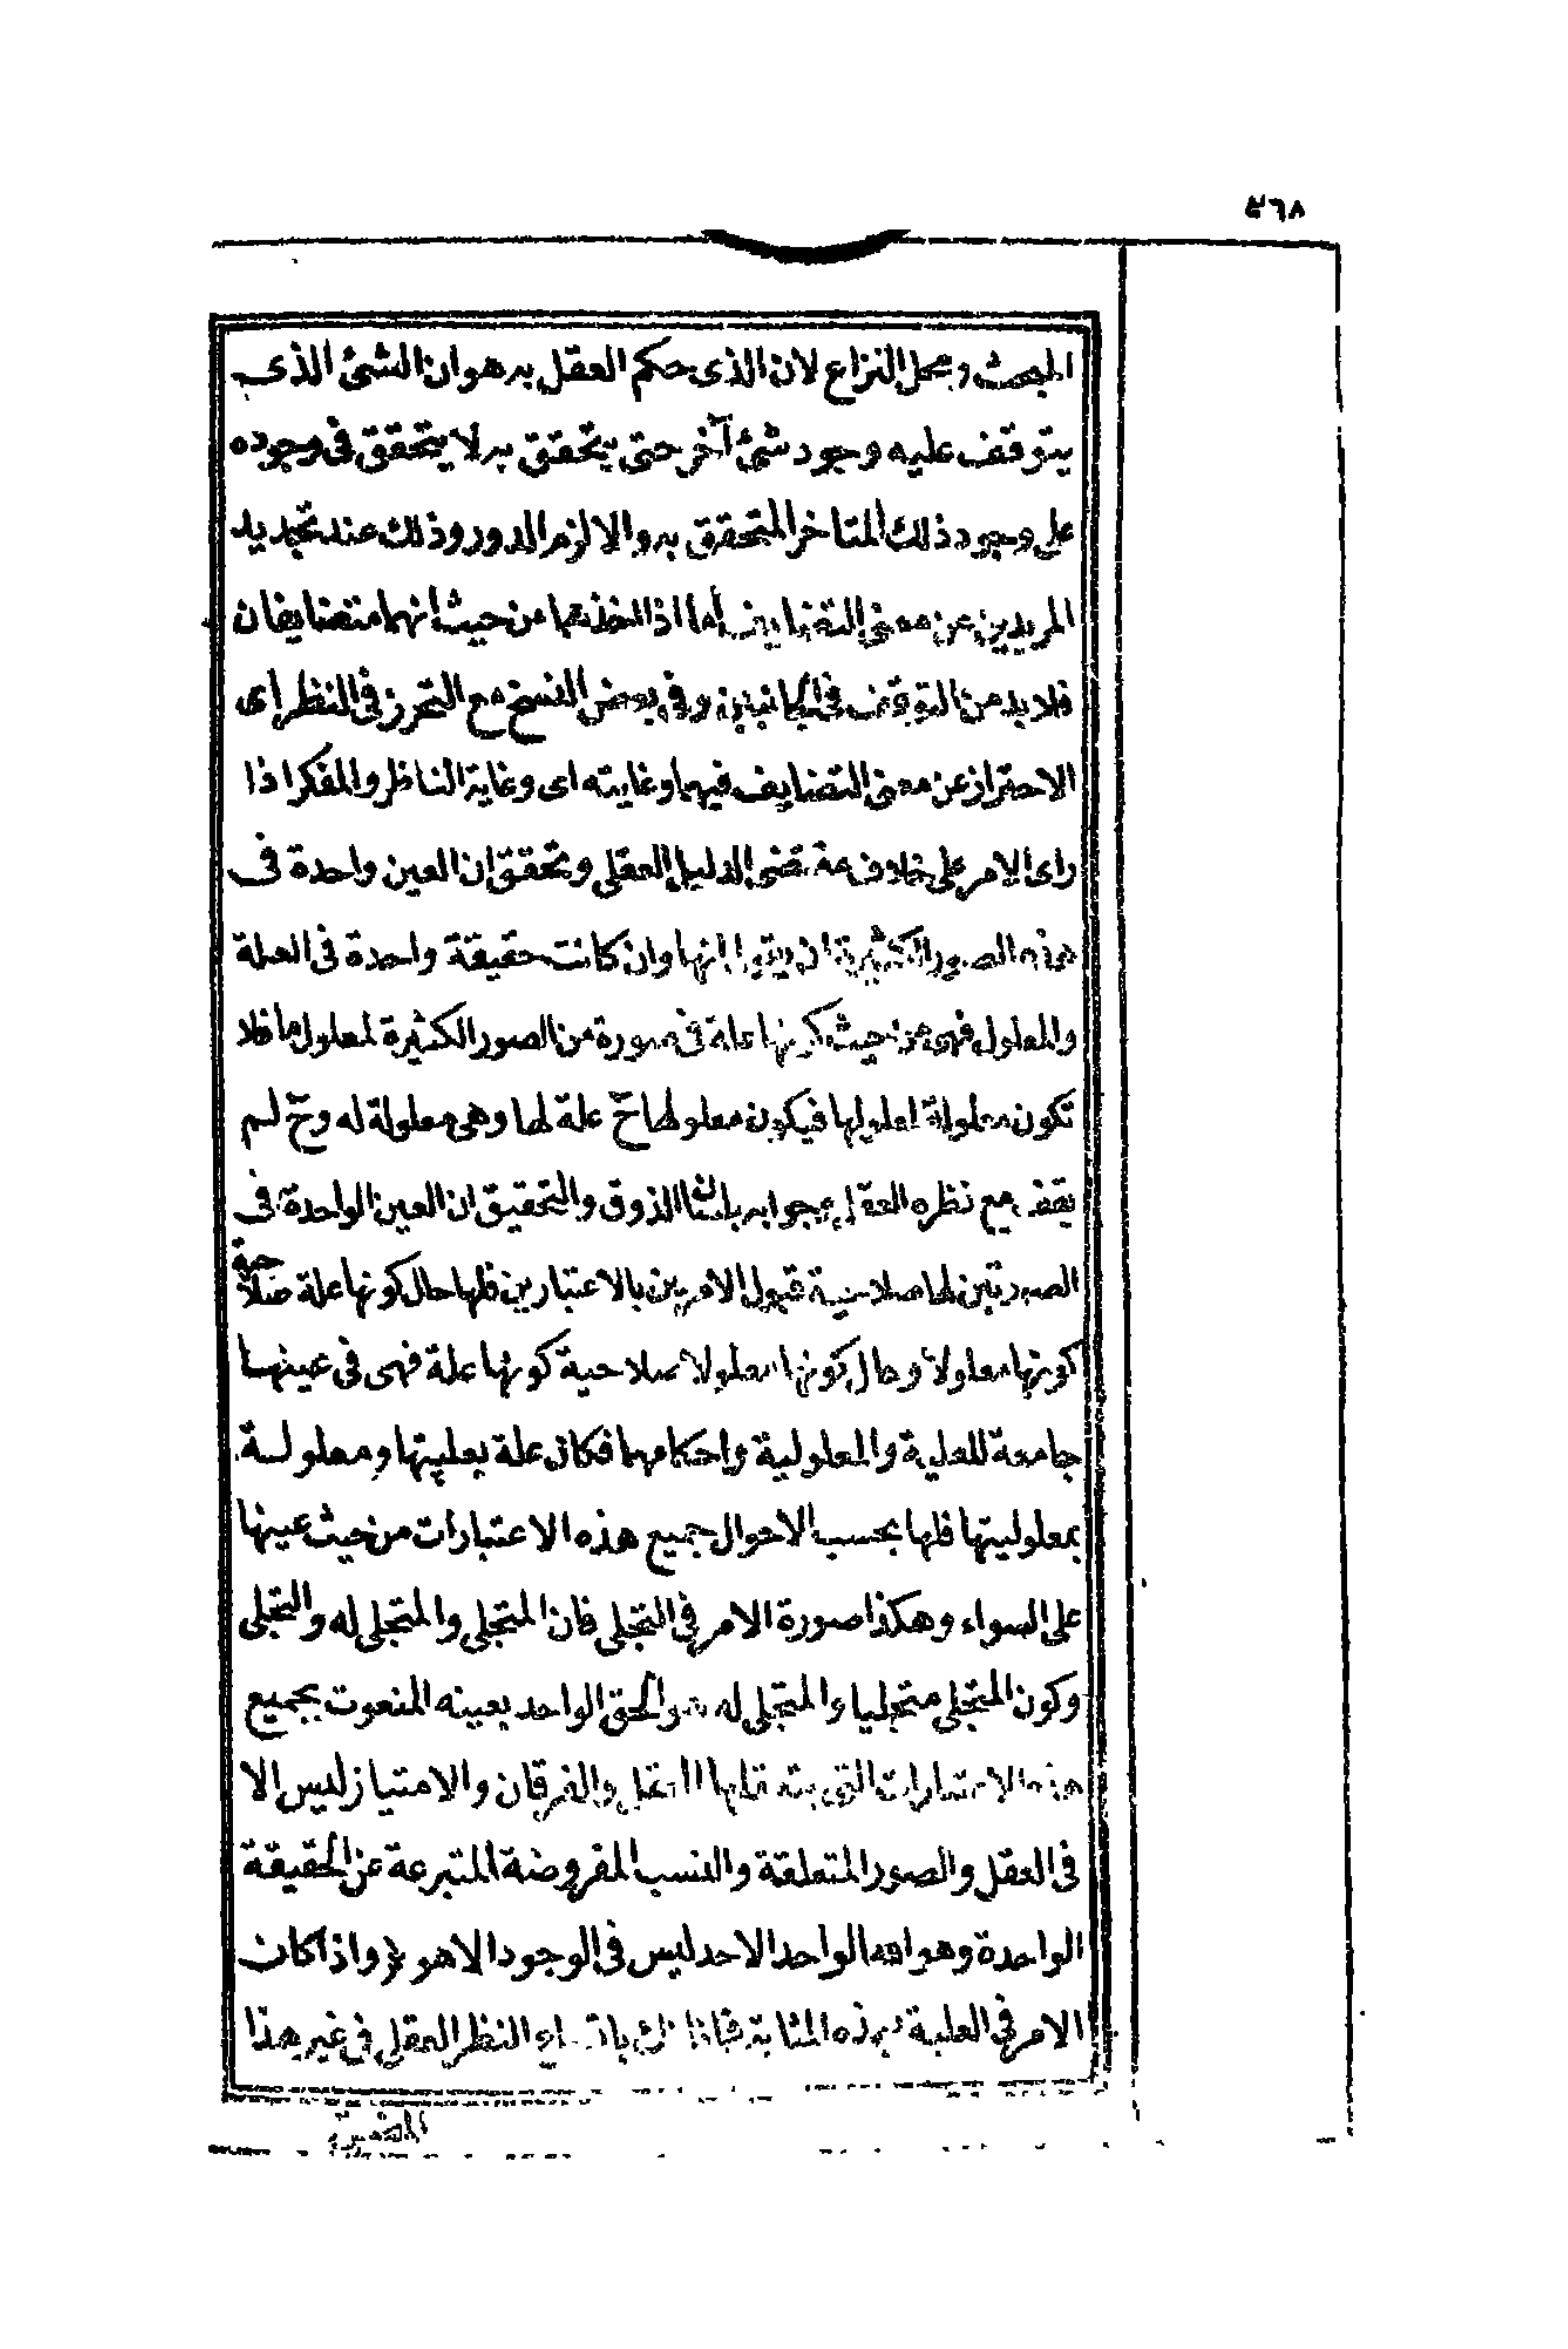 ٤٦٨
المبحث ومحل النزاع لان الذى حكم العقل به هو ان الشئ الذى
يتوقف عليه وجود شئ آخر حتى يتحقق به لا يتحقق فى وجوده
على وجود ذلك المتاخر المتحقق به والا لزم الدور وذلك عند تجديد
المريدين عن معنى التضايف اما اذا اخذتهما من حيث انهما متضايفان
فلا بد من التوقف فى الجانبين وفى بعض النسخ مع التحرز فى النظر اى
الاحتراز عن معنى التضايف فيهما وغايته اى وغاية الناظر والمفكر اذا
راى الامر على خلاف مقتضى الدليل العقلى وتحقق ان العين واحدة فى
هذه الصور الكثيرة ان يقول انها وان كانت حقيقة واحدة فى العلة
والمعلول فهى من حيث كونها علة فى صورة من الصور الكثيرة لمعلول ما فلا
تكون معلولة لمعلولها فيكون معلولها ح علة لها وهى معلولة له وح لم
يقف مع نظره العقلى وجوابه بلسان الذوق والتحقيق ان العين الواحدة فى
الصورتين لها صلاحية قبول الامرين بالاعتبارين فلها حال كونها علة صلاحية
كونها معلولا وحال كونها معلولا صلاحية كونها علة فهى فى عينها
جامعة للعلية والمعلولية واحكامهما فكان علة بعليتها ومعلولة
بمعلوليتها فلها بحسب الاحوال جميع هذه الاعتبارات من حيث عينها
على السواء وهكذا صورة الامر فى التجلى فان المتجلى والمتجلى له والتجلى
وكون المتجلى متجليا والمتجلى له هو الحق الواحد بعينه المنعوت بجميع
هذه الاعتبارات التى يتعقلها العقل والفرقان والامتياز ليس الا
فى العقل والصور المتعلقة والنسب المفروضة المتبرعة عن الحقيقة
الواحدة وهو الله الواحد الاحد ليس فى الوجود الا هو واذا كان
الامر فى العلية بهذه المثابة فما ظنك باتساع النظر العقلى فى غير هذا
المضيق